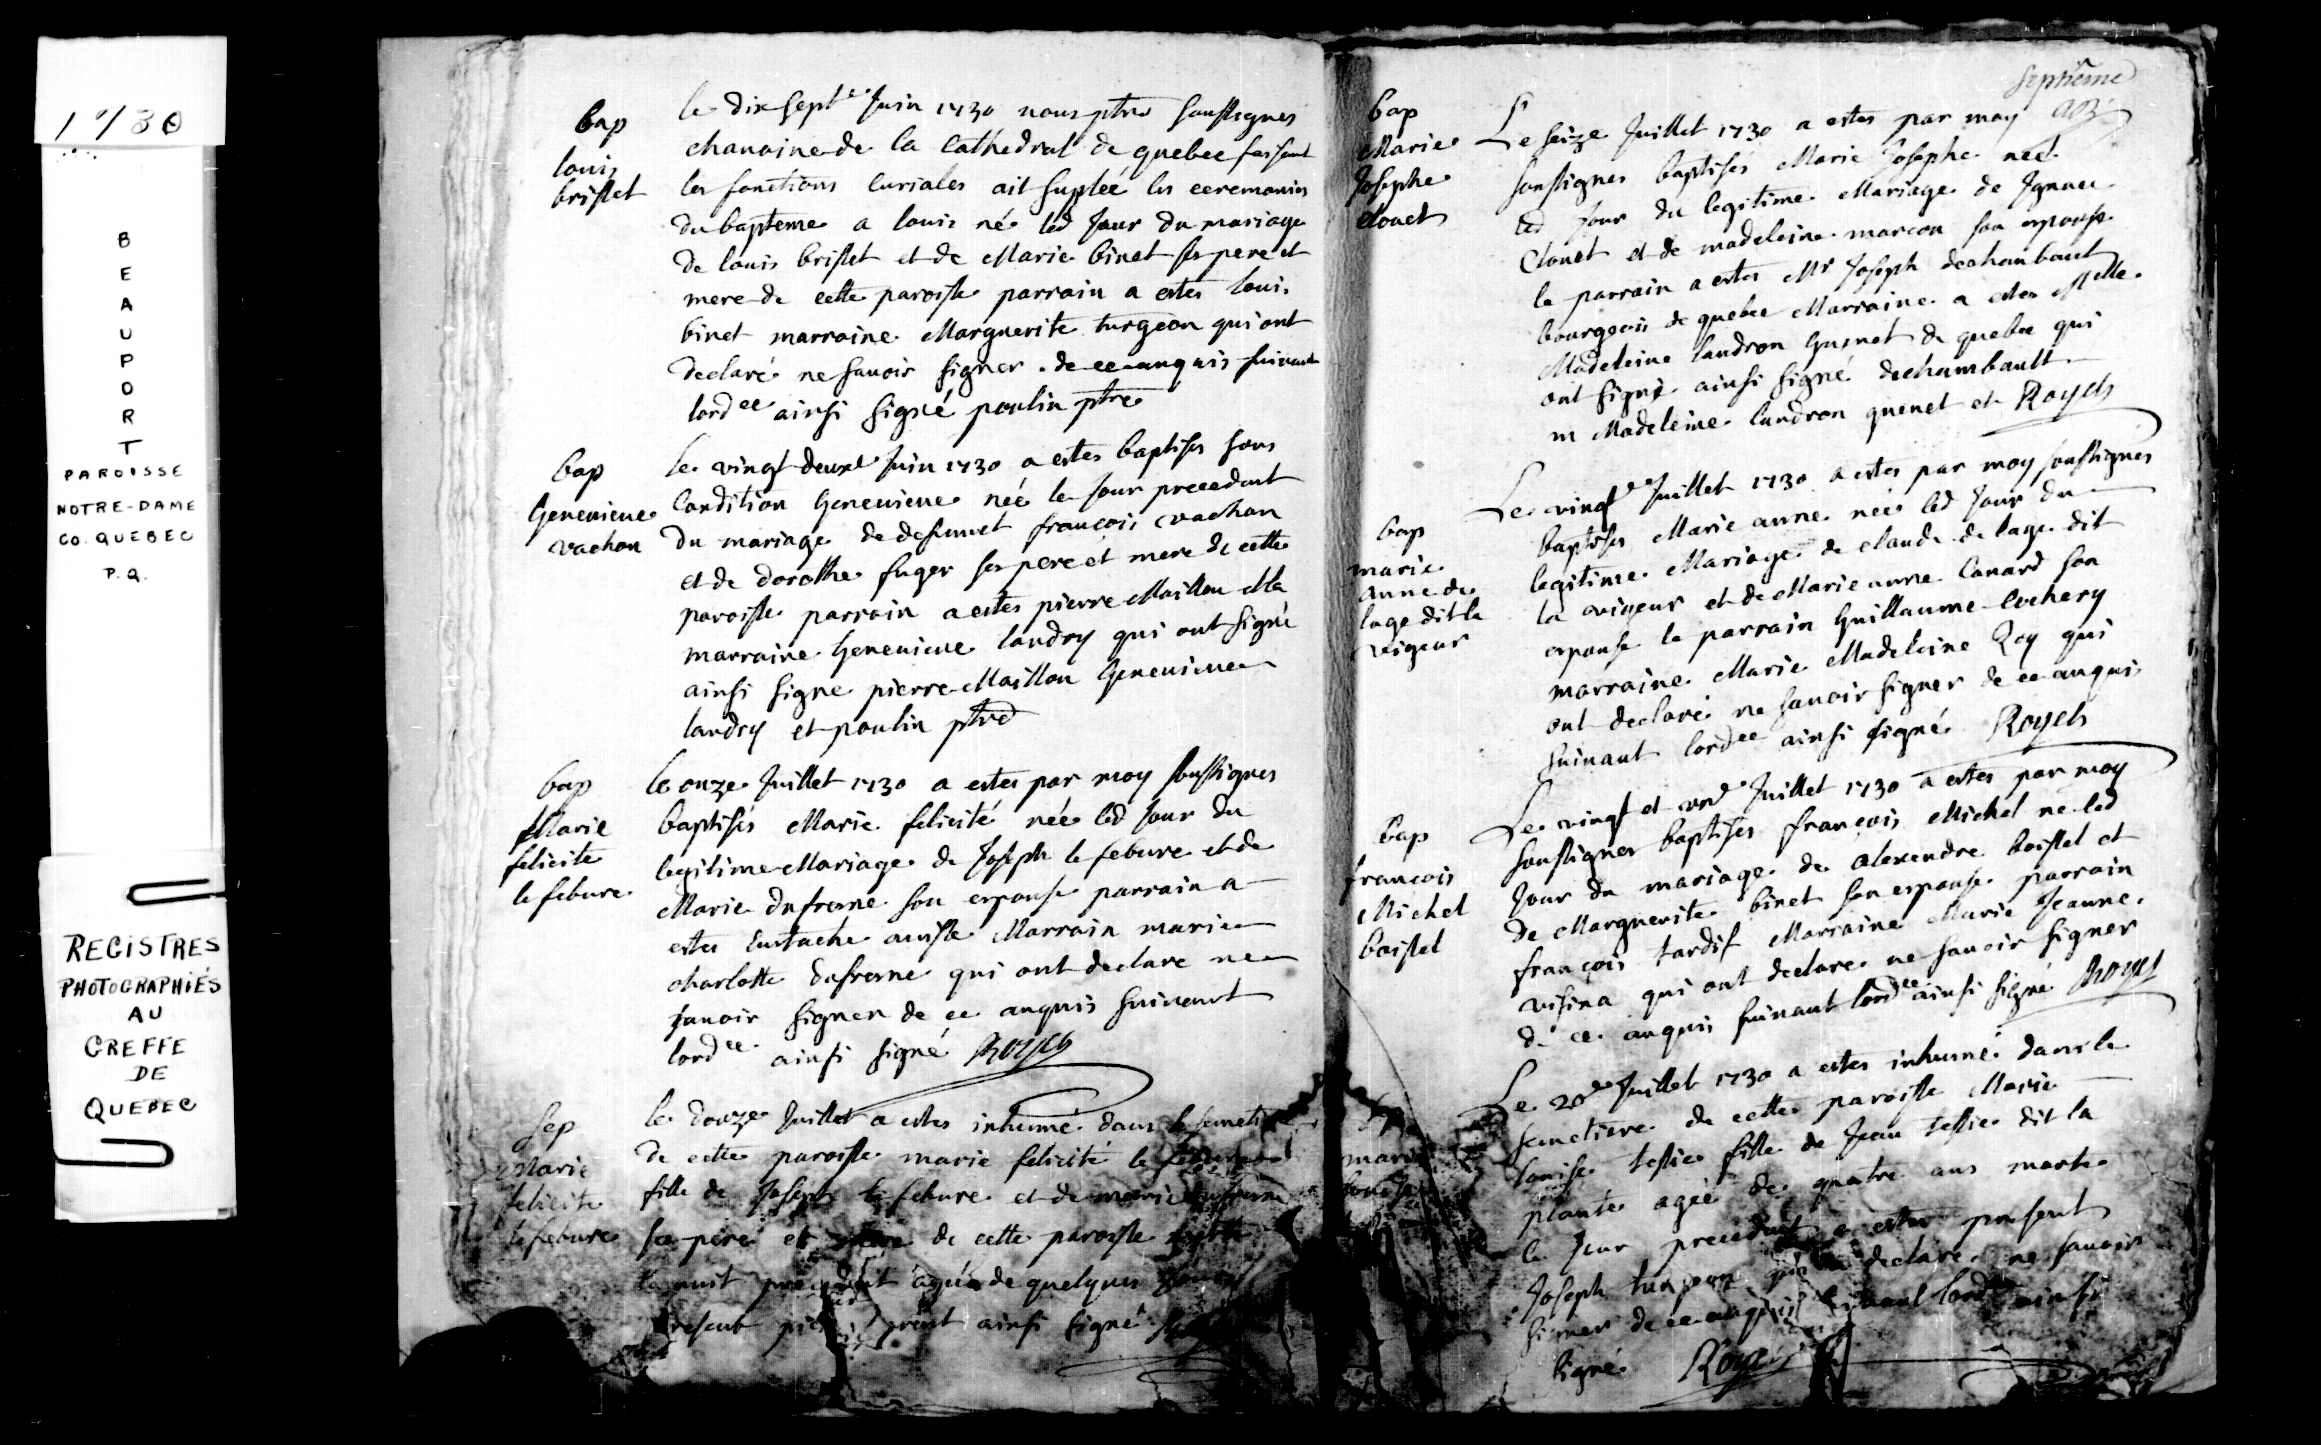 1730
BEAUPORT
PAROISSE
NOTRE-DAME
CO. QUEBEC
P.Q.
REGISTRES
PHOTOGRAPHIÉS
AU
GREFFE
DE
QUEBEC
bap
louis
brisset
le dix sept.e Juin 1730 nous ptre soussignes
chanoine de la Cathedral de quebec faisant
les fonctions Curiales ait supleé les ceremonies
du bapteme a louis né led Jour du mariage
de louis brisset et de Marie binet ses pere et
mere de cette paroisse parrain a estes louis
binet marraine Marguerite turgeon qui ont
declaré ne savoir signer de ce anquis suivant
lordce ainsi signé poulin ptre
bap
Genevieve
vachon
le vingt deuxe Juin 1730 a estes baptises sous
Condition Genevieve née le Jour precedant
du mariage de defunct françois vachon
et de dorothe fuger ses pere et mere de cette
paroisse parrain a estes pierre Maillou Mla
marraine Genevieve landry qui ont signé
ainsi signe pierre Maillou Genevieve
landry et poulin ptre
bap
Marie
felicite
le febure
le onze Juillet 1730 a estes par moy soussignes
baptisés Marie felicité née led Jour du
legitime Mariage de Joseph le febure et de
Marie dufresne son espouse parrain a
estes Eustache avisse Marrain marie
charlotte dufresne qui ont declare ne
savoir signer de ce anquis suivant
lordce ainsi signé Royels
Sep
Marie
felicite
lefebure
le douze Juillet a estes inhumé dans le semeti
de cette paroisse marie felicité le febure
fille de Joseph le febure et de marie dufresne
ses pere et mere de cette paroisse
la nuit precedent agée de quelques
present ainsi signé
septième
bap
Marie
Josephe
clouet
Le seize Juillet 1730 a estes par moy
soussignes baptisés Marie Josephe neé
led Jour du legitime Mariage de Ignace
Clouet et de madeleine marcou son espouse
le parrain a estes Mr Joseph dechambault
bourgeois de quebec Marraine a estes Melle
Madeleine landron Guenet de quebec qui
ont signé ainsi signé dechambault
m Madeleine landron guenet et Royels
bap
marie
anne de
lage dit la
vigeur
Le vingt.e Juillet 1730 a estes par moy soussignés
baptises Marie anne née led Jour du
legitime Mariage de claude de lage dit
la vigeur et de Marie anne Canard son
espouse le parrain Guillaume Cochery
marraine Marie Madeleine Roy qui
ont declaré ne savoir signer de ce anquis
suivant lordce ainsi signé Royels
bap
françois
Michel
boisset
Le vingt et une Juillet 1730 a estes par moy
soussignes baptises françois Michel ne led
Jour du mariage de alexendre boisset et
de Marguerite binet son espouse parrain
françois tardif Marraine Marie Jeanne
visina qui ont declare ne savoir signer
de ce anquis suivant lordce ainsi signé Royel
marie
louise
Le 20e Juillet 1730 a estes inhumé dans le
semetiere de cette paroisse Marie
louise tessie fille de Jean tessie dit la
plante ageé de quatre ans morte
le Jour precedent a estes present
Joseph declare ne savoir
signer de ce anquis suivant lordce ainsi
signé Royels